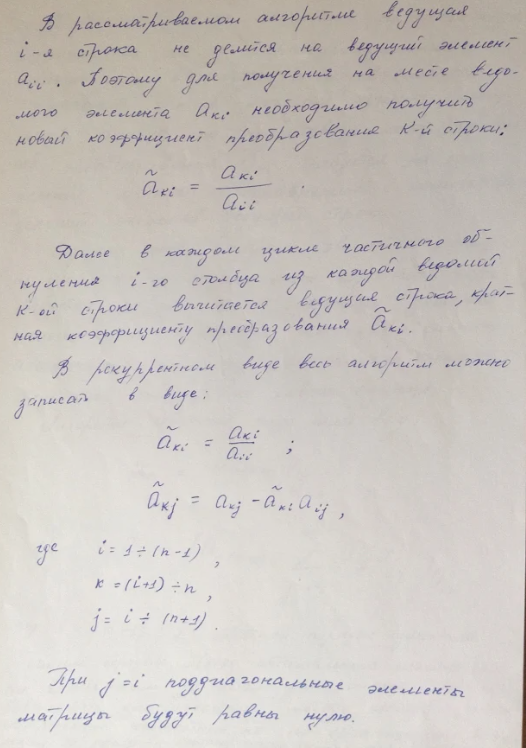 В рассматриваемом алгоритме ведущая
i-я строка не делится на ведущий элемент
aii. Поэтому для получения на месте ведо-
мого элемента aкi необходимо получить
новый коэффициент преобразования К-й строки:
ãкi = aкi / aii .
Далее в каждом цикле частичного об-
нуления i-го столбца из каждой ведомой
К-ой строки вычитается ведущая строка, крат-
ная коэффициенту преобразования ãкi.
В рекуррентном виде весь алгоритм можно
записать в виде:
ãкi = aкi / aii ;
ãкj = aкj - ãкi aij ,
где i = 1 ÷ (n-1) ,
к = (i+1) ÷ n ,
j = i ÷ (n+1) .
При j=i поддиагональные элементы
матрицы будут равны нулю.